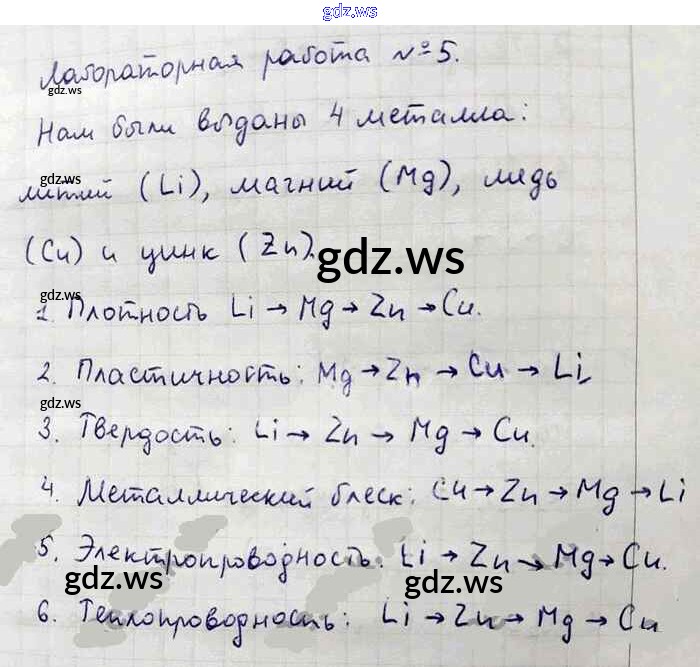 gdz.ws
Лабораторная работа №5.
gdz.ws
Нам были выданы 4 металла:
gdz.ws
литий (Li), магний (Mg), медь
(Cu) и цинк (Zn).
gdz.ws
1. Плотность Li → Mg → Zn → Cu.
2. Пластичность: Mg → Zn → Cu → Li
gdz.ws
3. Твердость: Li → Zn → Mg → Cu.
4. Металлический блеск: Cu → Zn → Mg → Li
5. Электропроводность: Li → Zn → Mg → Cu.
gdz.ws gdz.ws
6. Теплопроводность: Li → Zn → Mg → Cu
gdz.ws